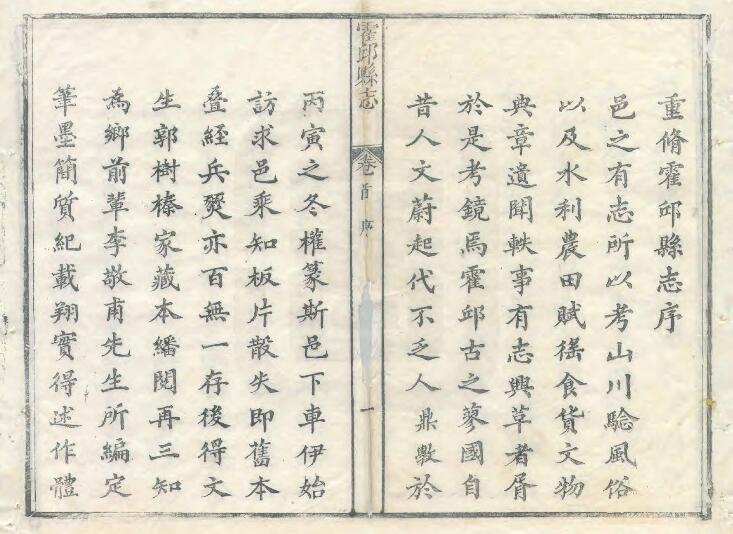 重脩霍邱縣志序
邑之有志所以考山川驗風俗
以及水利農田賦徭食貨文物
典章遺聞軼事有志興革者胥
於是考鏡焉霍邱古之蓼國自
昔人文蔚起代不乏人鼎歝於
霍邱縣志
卷首 序
一
丙寅之冬權篆斯邑下車伊始
訪求邑乘知板片散失即舊本
叠經兵燹亦百無一存後得文
生郭樹榛家藏本繙閱再三知
為鄉前輩李敬甫先生所編定
筆墨簡質紀載翔實得述作體